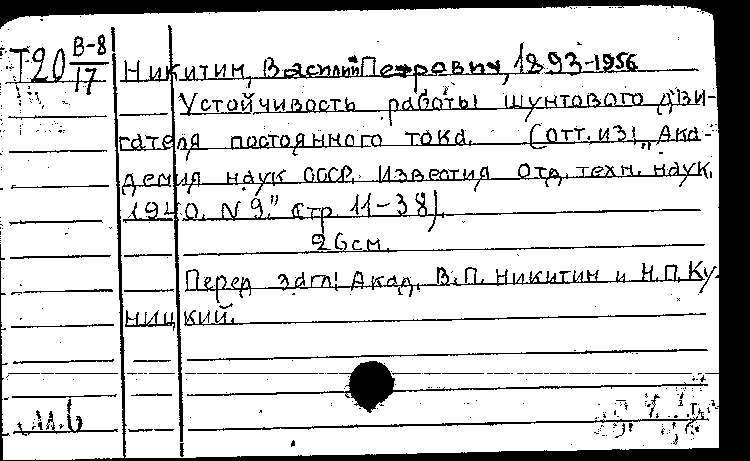 Т20 В-8/17
Никитин, Василий Петрович, 1893-1956
Устойчивость работы шунтового дви-
гателя постоянного тока. (отт. из: „Ака-
демия наук СССР. Известия Отд. техн. наук,
1940. N 9." стр. 11-38).
26см.
Перед загл: Акад. В.П. Никитин и Н.П. Ку-
ницкий.